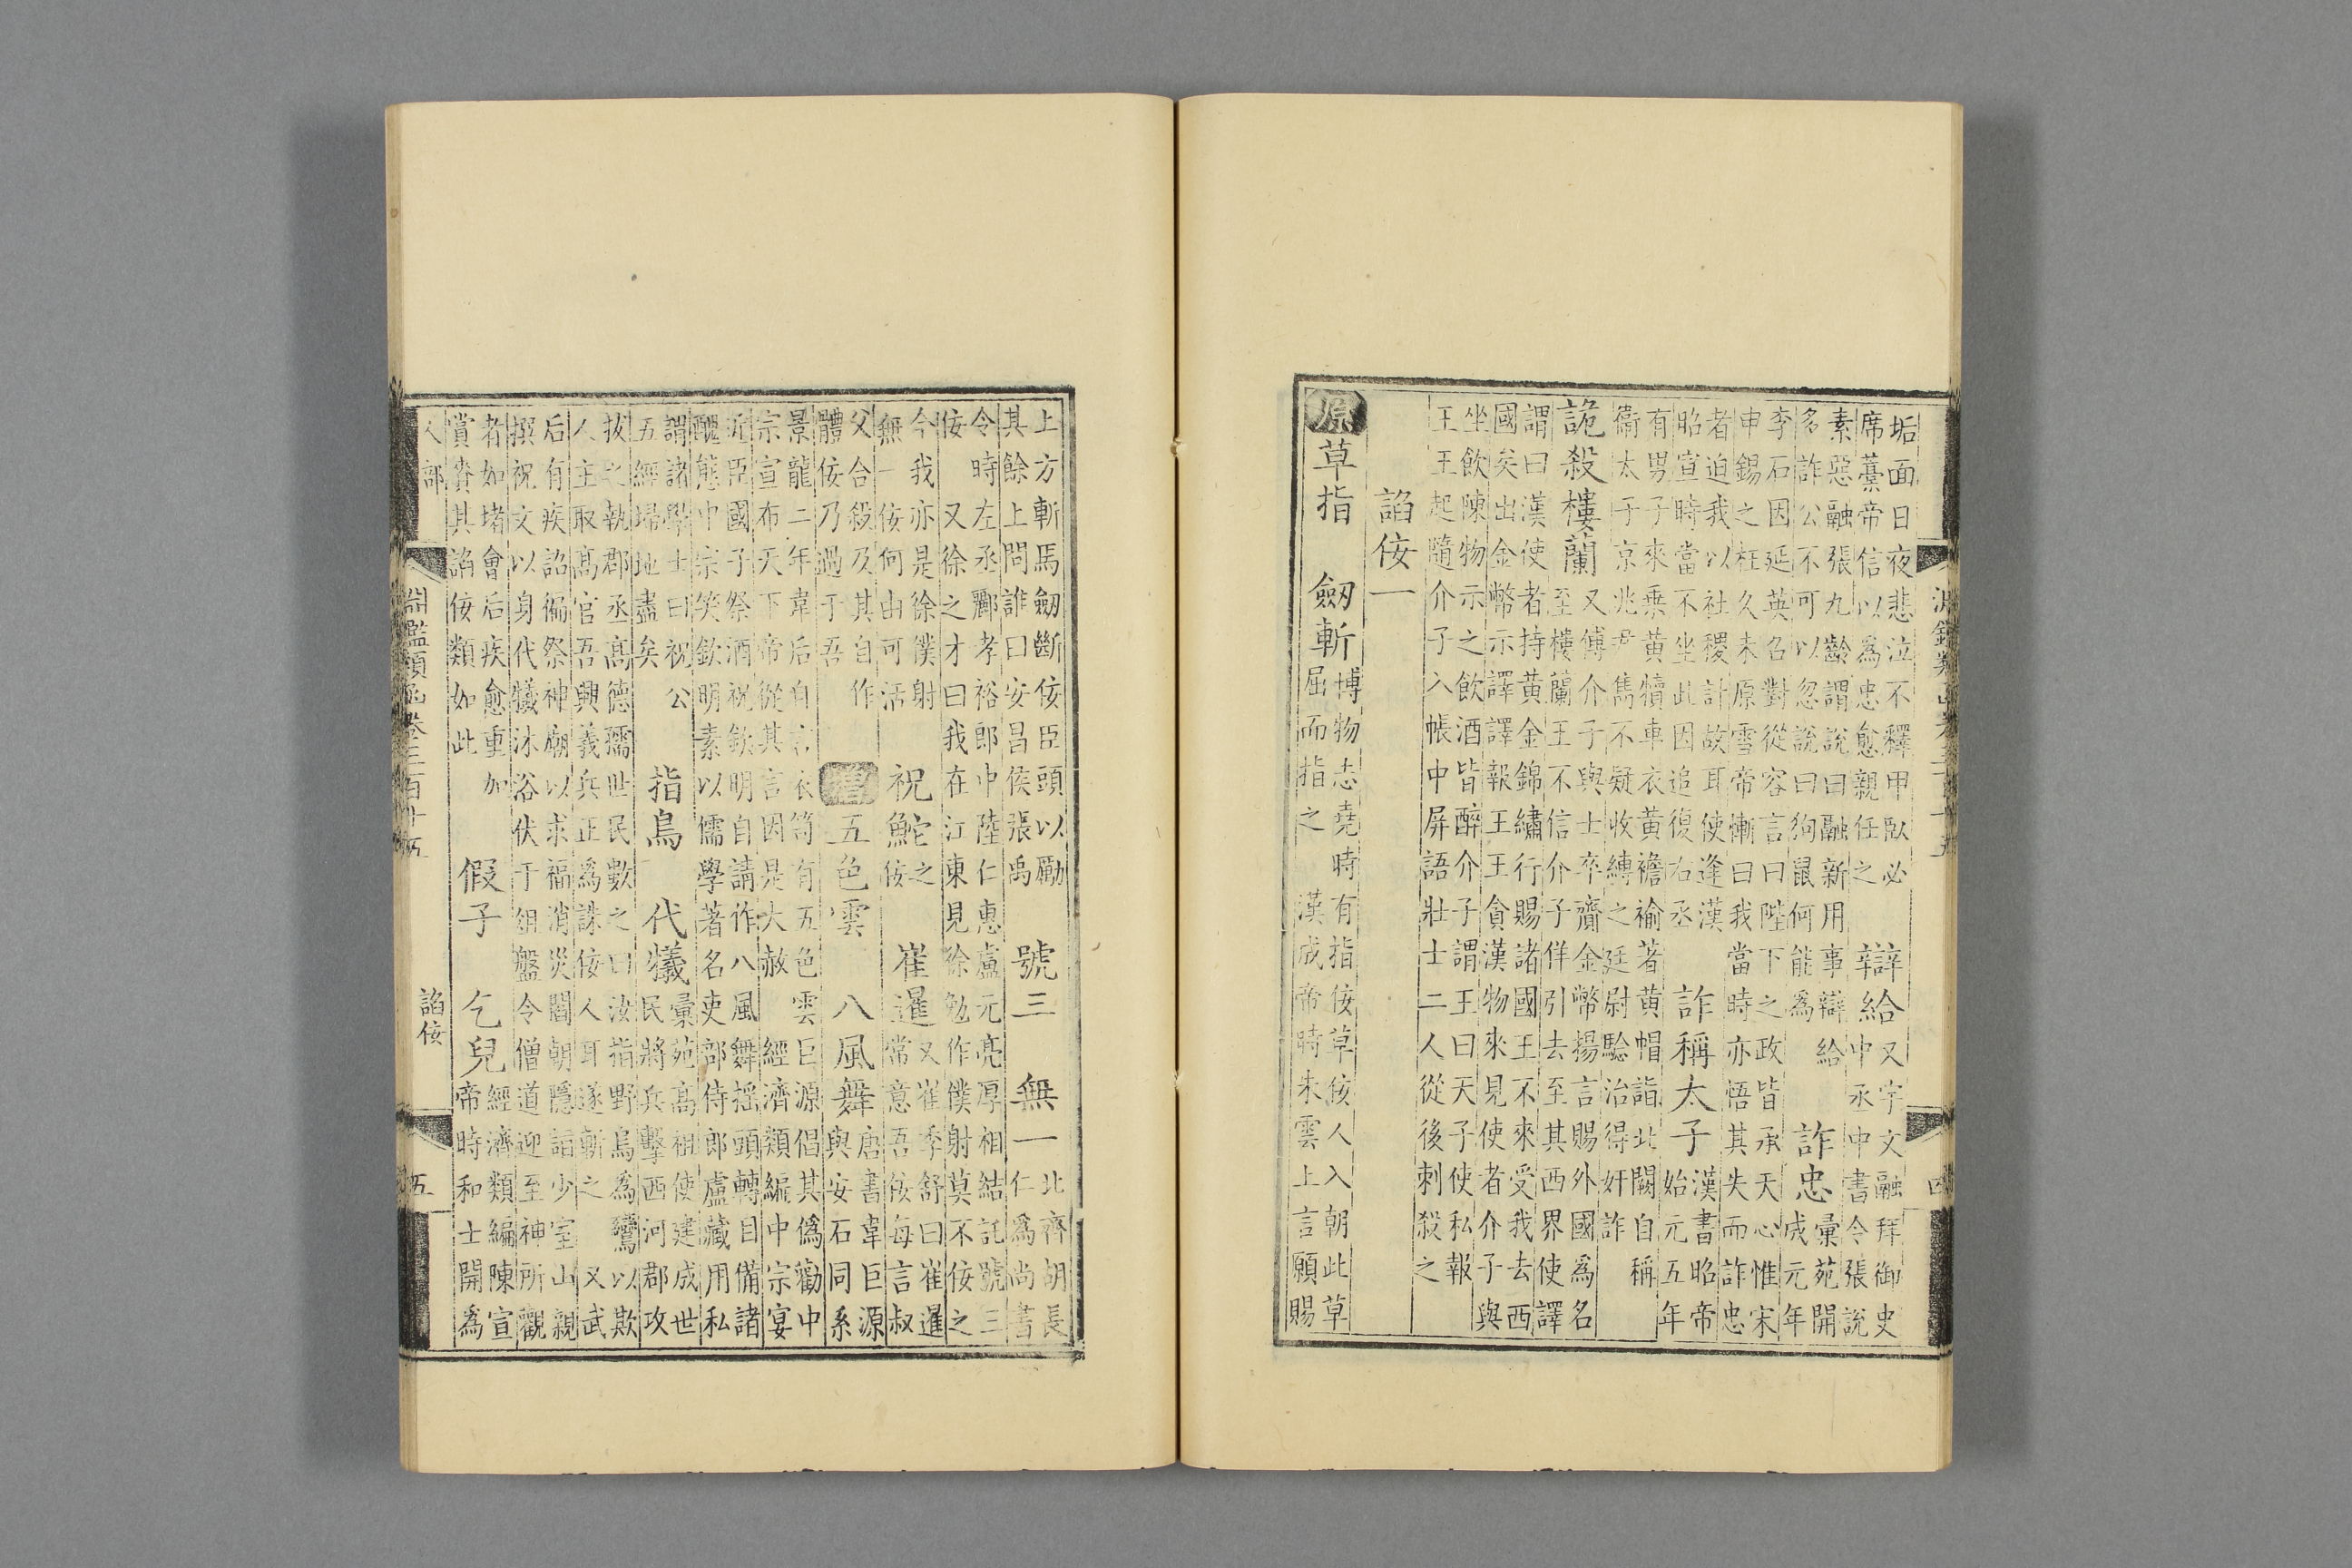 淵鑑類函卷三百十五 四
垢面日夜悲泣不釋甲臥必
席藁帝信以爲忠愈親任之
辯給
又宇文融拜御史
中丞中書令張說
素惡融張九齡謂說曰融新用事辯給
多詐公不可以忽說曰狗鼠何能爲
詐忠
彙苑開
成元年
李石因延英召對從容言曰陛下之政皆承天心惟宋
申錫之枉久未原雪帝慚曰我當時亦悟其失而詐忠
者迫我以社稷計故耳使逢漢
昭宣時當不坐此因追復右丞
詐稱太子
漢書昭帝
始元五年
有男子來乗黃犢車衣黃襜褕著黃帽詣北闕自稱
衛太子京兆尹雋不疑收縛之廷尉驗治得奸詐
詭殺樓蘭
又傅介子與士卒齎金幣揚言賜外國爲名
至樓蘭王不信介子佯引去至其西界使譯
謂曰漢使者持黃金錦繡行賜諸國王不來受我去西
國矣出金幣示譯譯報王王貪漢物來見使者介子與
坐飲陳物示之飲酒皆醉介子謂王曰天子使私報
王王起隨介子入帳中屏語壯士二人從後刺殺之
諂佞一
原草指 劒斬
博物志堯時有指佞草佞人入朝此草
屈而指之 漢成帝時朱雲上言願賜
上方斬馬劒斷佞臣頭以勵
其餘上問誰曰安昌侯張禹
號三 無一
北齊胡長
仁爲尚書
令時左丞酈孝裕郎中陸仁惠盧元亮厚相結託號三
佞 又徐之才曰我在江東見徐勉作僕射莫不佞之
今我亦是徐僕射
無一佞何由可活
祝鮀
之
佞
崔暹
又崔季舒曰崔暹
常意吾佞每言叔
父合殺及其自作
體佞乃過于吾
增五色雲 八風舞
唐書韋巨源
與安石同系
景龍二年韋后自言衣笥有五色雲巨源倡其僞勸中
宗宣布天下帝從其言因是大赦 經濟類編中宗宴
近臣國子祭酒祝欽明自請作八風舞搖頭轉目備諸
醜態中宗笑欽明素以儒學著名吏部侍郎盧藏用私
謂諸學士曰祝公
五經埽地盡矣
指烏 代犧
彙苑高祖使建成世
民將兵擊西河郡攻
拔之執郡丞高德孺世民數之曰汝指野烏爲鸞以欺
人主取高官吾興義兵正爲誅佞人耳遂斬之 又武
后有疾詔徧祭神廟以求福消災閻朝隱詣少室山親
撰祝文以身代犧沐浴伏于俎盤令僧道迎至神所觀
者如堵會后疾愈重加
賞賚其諂佞類如此
假子 乞兒
經濟類編陳宣
帝時和士開爲
人部 淵鑑類函卷三百十五 諂佞 五